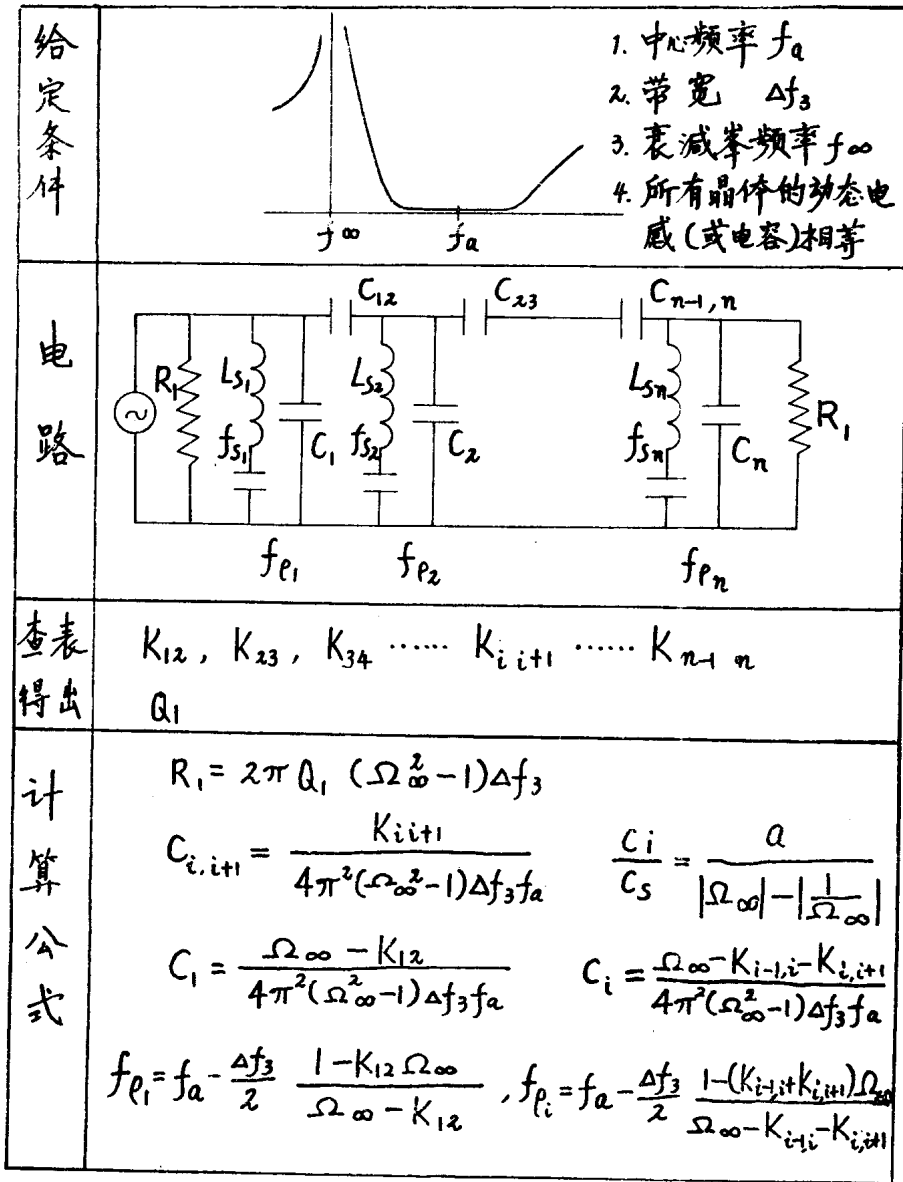 给定条件
1. 中心频率 fa
2. 带宽 Δf₃
3. 衰减峯频率 f∞
4. 所有晶体的动态电
感(或电容)相等
f∞
fa
电路
C₁₂
C₂₃
Cₙ₋₁,ₙ
R₁
Ls₁
fs₁
C₁
Ls₂
fs₂
C₂
Lsₙ
fsₙ
Cₙ
R₁
fρ₁
fρ₂
fρₙ
查表
得出
K₁₂, K₂₃, K₃₄ …… K_{i i+1} …… K_{n-1 n}
Q₁
计算公式
R₁ = 2π Q₁ (Ω∞² − 1) Δf₃
C_{i,i+1} = K_{ii+1} / 4π²(Ω∞² − 1)Δf₃fa
Ci / Cs = a / |Ω∞| − |1/Ω∞|
C₁ = Ω∞ − K₁₂ / 4π²(Ω∞² − 1)Δf₃fa
C_i = Ω∞ − K_{i-1,i} − K_{i,i+1} / 4π²(Ω∞² − 1)Δf₃fa
fρ₁ = fa − Δf₃/2 1 − K₁₂Ω∞ / Ω∞ − K₁₂ , fρ_i = fa − Δf₃/2 1 − (K_{i-1,i} + K_{i,i+1})Ω∞ / Ω∞ − K_{i-1,i} − K_{i,i+1}